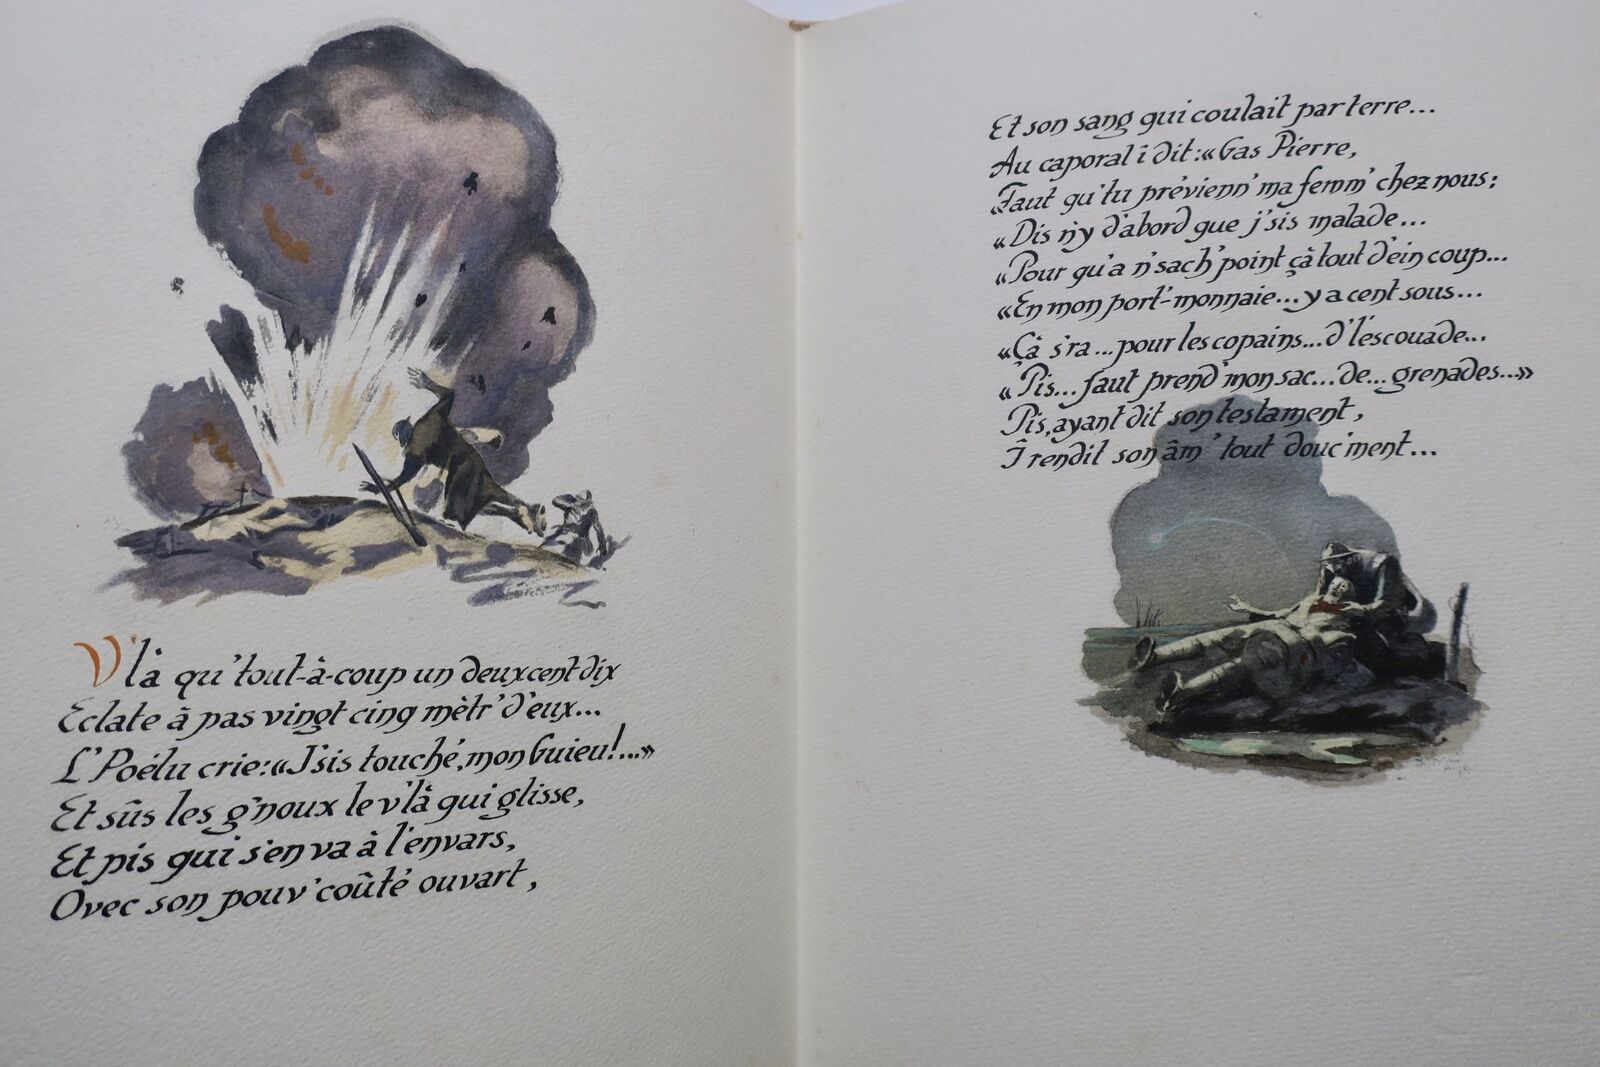 V'là qu'tout-à-coup un deux cent dix
Eclate à pas vingt cinq mètr' d'eux...
L'Poélu crie: «J'sis touché, mon Guieu!...»
Et sûs les g'noux le v'là qui glisse,
Et pis qui s'en va à l'envars,
Ovec son pouv' coûté ouvart,
Et son sang qui coulait par terre...
Au caporal î dit: «Gas Pierre,
«Faut qu'tu prévienn' ma femm' chez nous;
«Dis n'y d'abord que j'sis malade...
«Pour qu'a n'sach' point çà tout d'ein coup...
«En mon port'-monnaie... y a cent sous...
«Çà s'ra... pour les copains... d'l'escouade...
«Pis... faut prend' mon sac... de... grenades...»
Pis, ayant dit son testament,
Î rendit son âm' tout douc'ment...